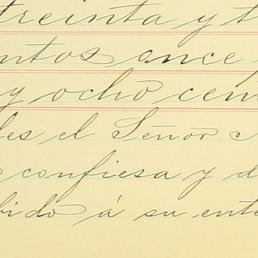 treinta y t
ntos once
y ocho cen
les el Señor
confiesa y d
bido á su ente